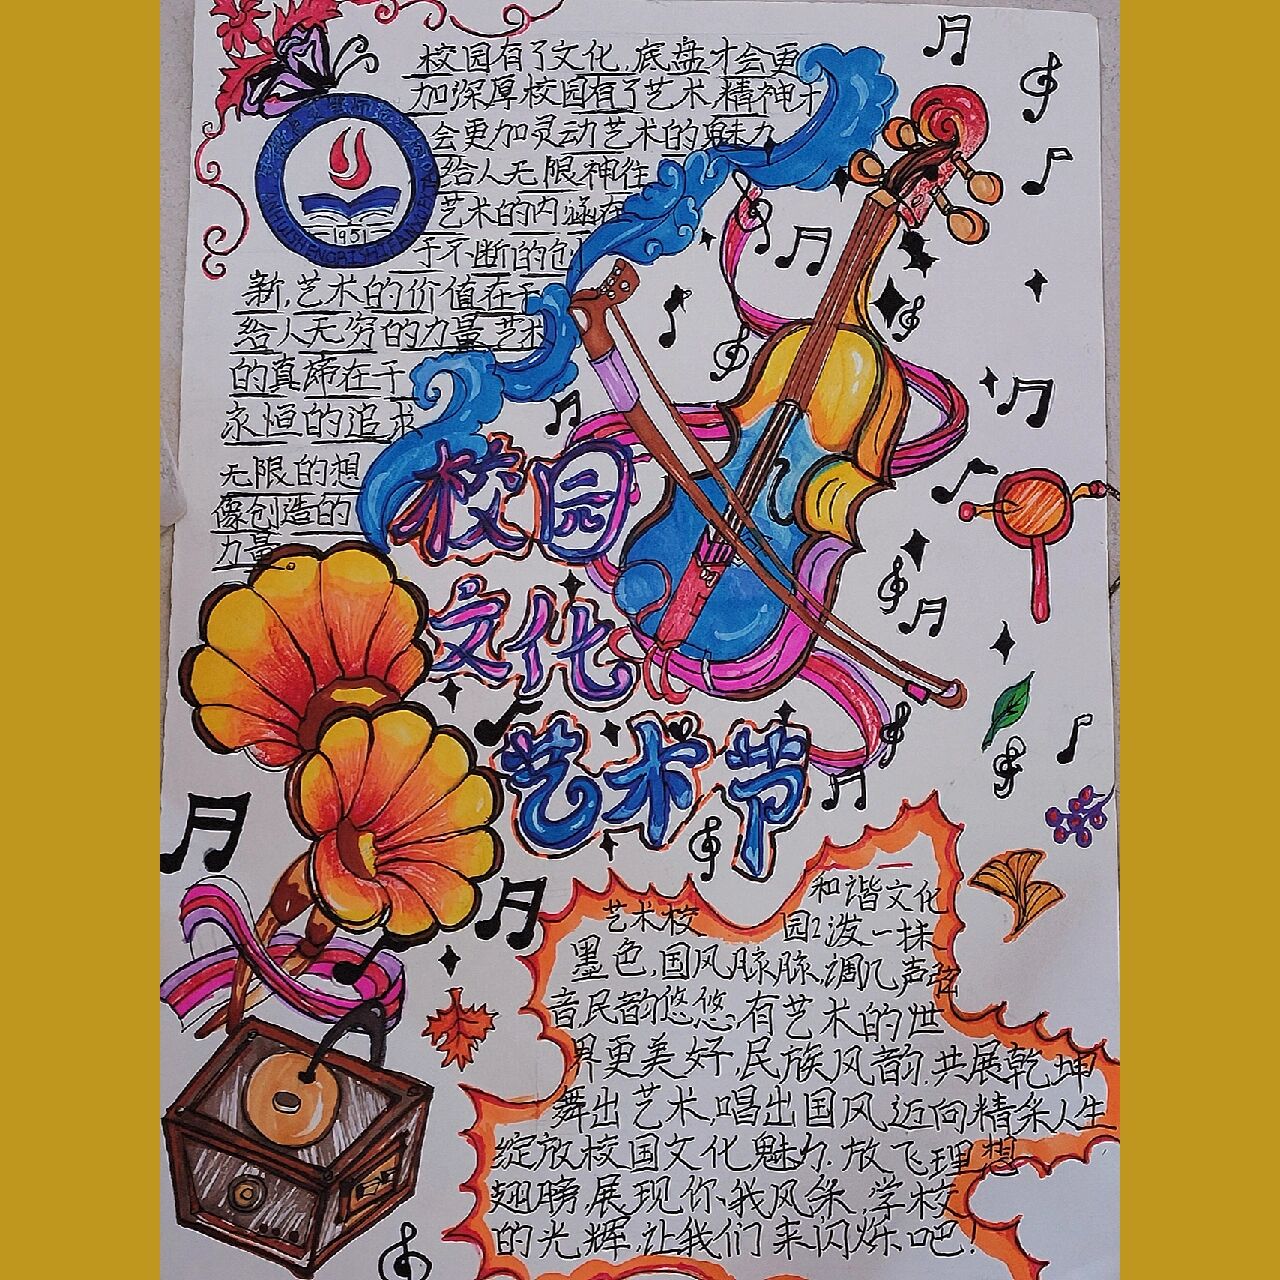 校园有了文化,底盘才会更
加深厚校园有了艺术,精神才
会更加灵动艺术的魅力
给人无限神往
艺术的内涵在
于不断的创
新,艺术的价值在于
给人无穷的力量,艺术
的真谛在于
永恒的追求
无限的想
像创造的
力量
1951
校园
文化
艺术节
艺术校
和谐文化
园泼一抹
墨色,国风脉脉,调几声弦
音,民韵悠悠,有艺术的世
界更美好,民族风韵,共展乾坤
舞出艺术,唱出国风,迈向精彩人生
绽放校国文化魅力,放飞理想
翅膀,展现你我风采,学校
的光辉,让我们来闪烁吧!